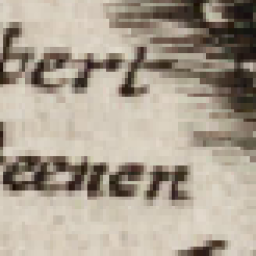 bert
eenen